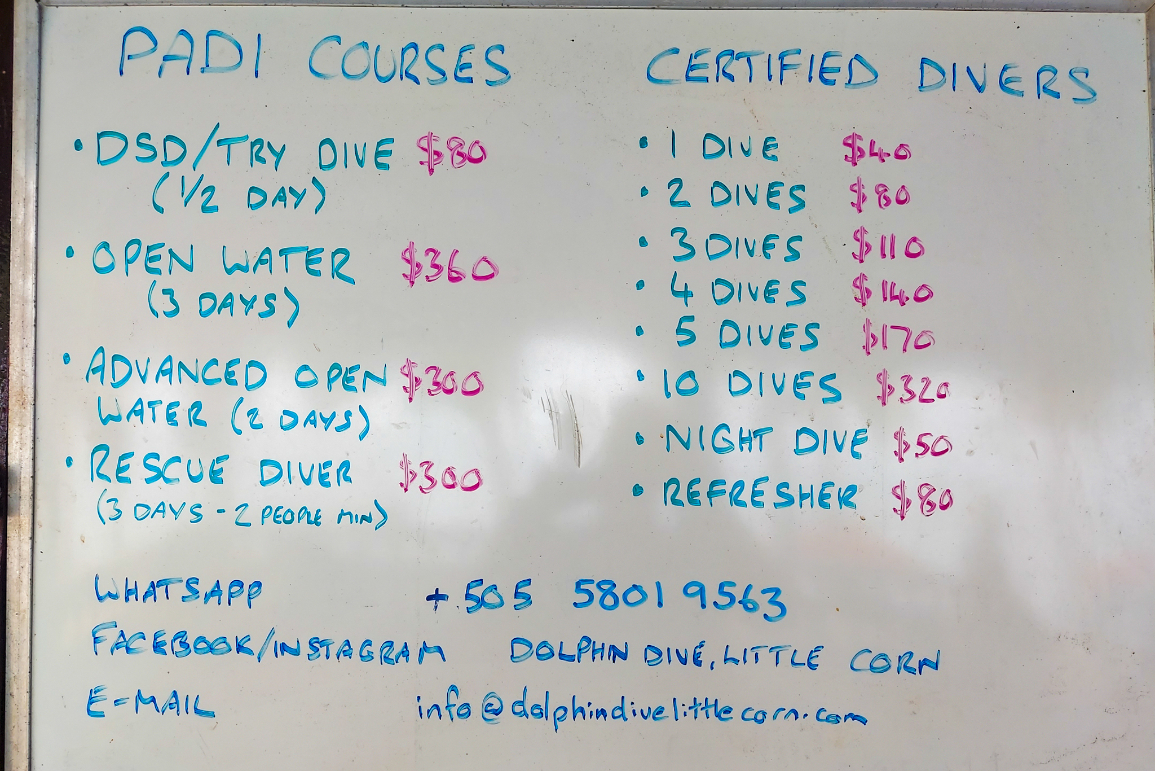 PADI COURSES
• DSD/TRY DIVE $80
(1/2 DAY)
• OPEN WATER $360
(3 DAYS)
• ADVANCED OPEN $300
WATER (2 DAYS)
• RESCUE DIVER $300
(3 DAYS - 2 PEOPLE MIN)
CERTIFIED DIVERS
• 1 DIVE $40
• 2 DIVES $80
• 3 DIVES $110
• 4 DIVES $140
• 5 DIVES $170
• 10 DIVES $320
• NIGHT DIVE $50
• REFRESHER $80
WHATSAPP +505 5801 9563
FACEBOOK/INSTAGRAM DOLPHIN DIVE, LITTLE CORN
E-MAIL info@dolphindivelittlecorn.com